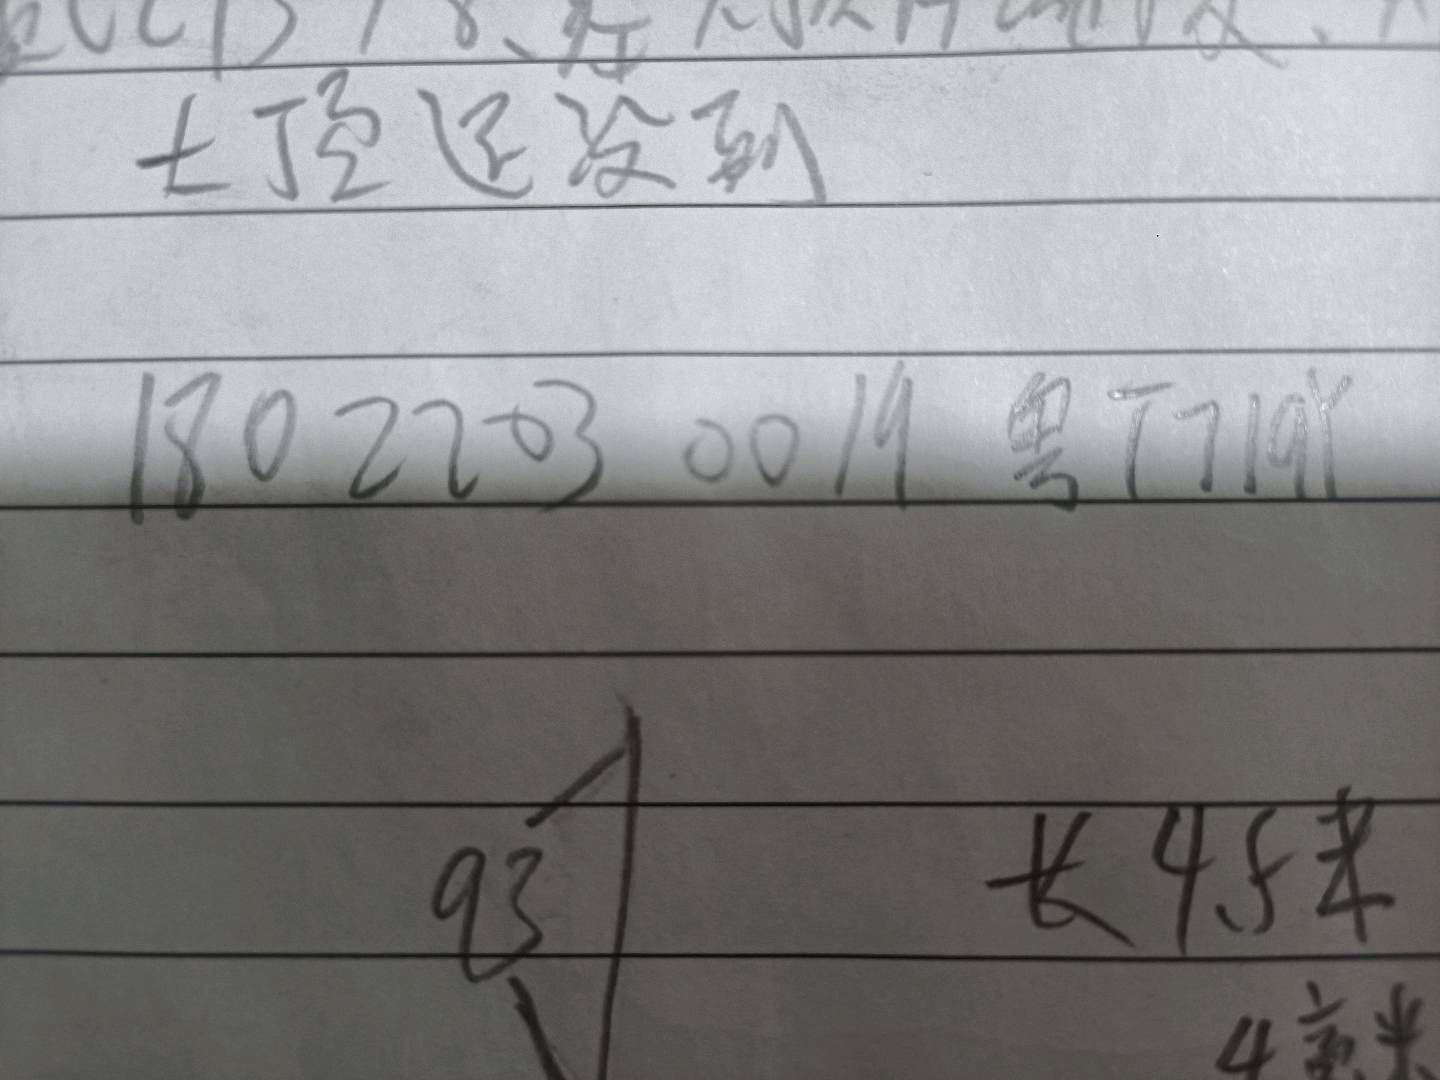 七顶还没到
18022030019 粤T719Y
93 长4.5米
4毫米